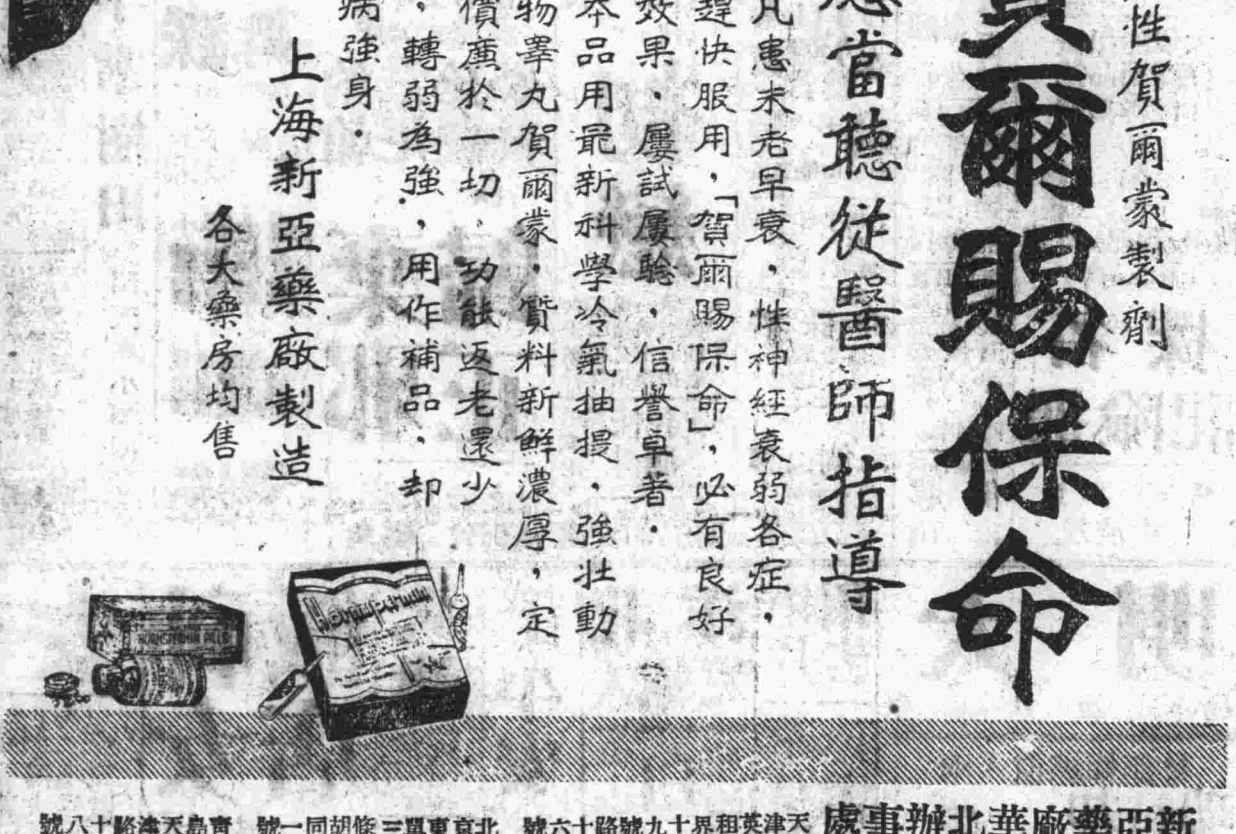 性賀爾蒙製劑
賀爾賜保命
應當聽從醫師指導
凡患未老早衰，性神經衰弱各症，
趕快服用，「賀爾賜保命」，必有良好
效果，屢試屢驗，信譽卓著．
本品用最新科學冷氣抽提，強壯動
物睪丸賀爾蒙，質料新鮮濃厚，定
價廉於一切，功能返老還少
，轉弱為強，用作補品，却
病強身．
上海新亞藥廠製造
各大藥房均售
HORMSPERMIN PILLS
新亞藥廠華北辦事處
天津英租界十九號路十六號
北京東單三條胡同一號
青島天津路十八號